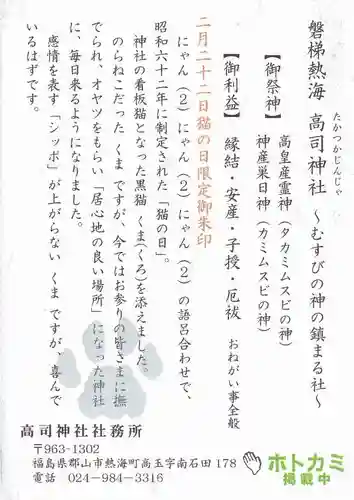 磐梯熱海 高司神社 ～むすびの神の鎮まる社～
たかつかじんじゃ
【御祭神】 高皇産霊神（タカミムスビの神）
神産巣日神（カミムスビの神）
【御利益】 縁結・安産・子授・厄祓 おねがい事全般
二月二十二日猫の日限定御朱印
にゃん（2）にゃん（2）にゃん（2）の語呂合わせで、
昭和六十二年に制定された「猫の日」。
神社の看板猫となった黒猫 くま(くろ)を添えました。
のらねこだった くま ですが、今ではお参りの皆さまに撫
でられ、オヤツをもらい「居心地の良い場所」になった神社
に、毎日来るようになりました。
感情を表す「シッポ」が上がらない くま ですが、喜んで
いるはずです。
高司神社社務所
〒963-1302
福島県郡山市熱海町高玉字南石田 178
電話 024-984-3316
ホトカミ
掲載中